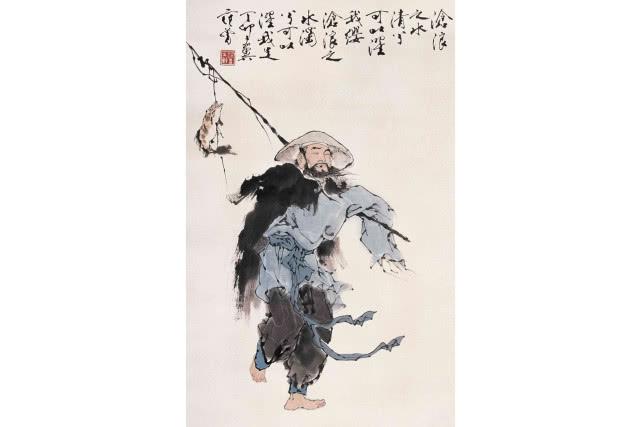 滄浪
之水
清兮
可以濯
我纓
滄浪之
水濁
兮可以
濯我足
丁卯
范曾